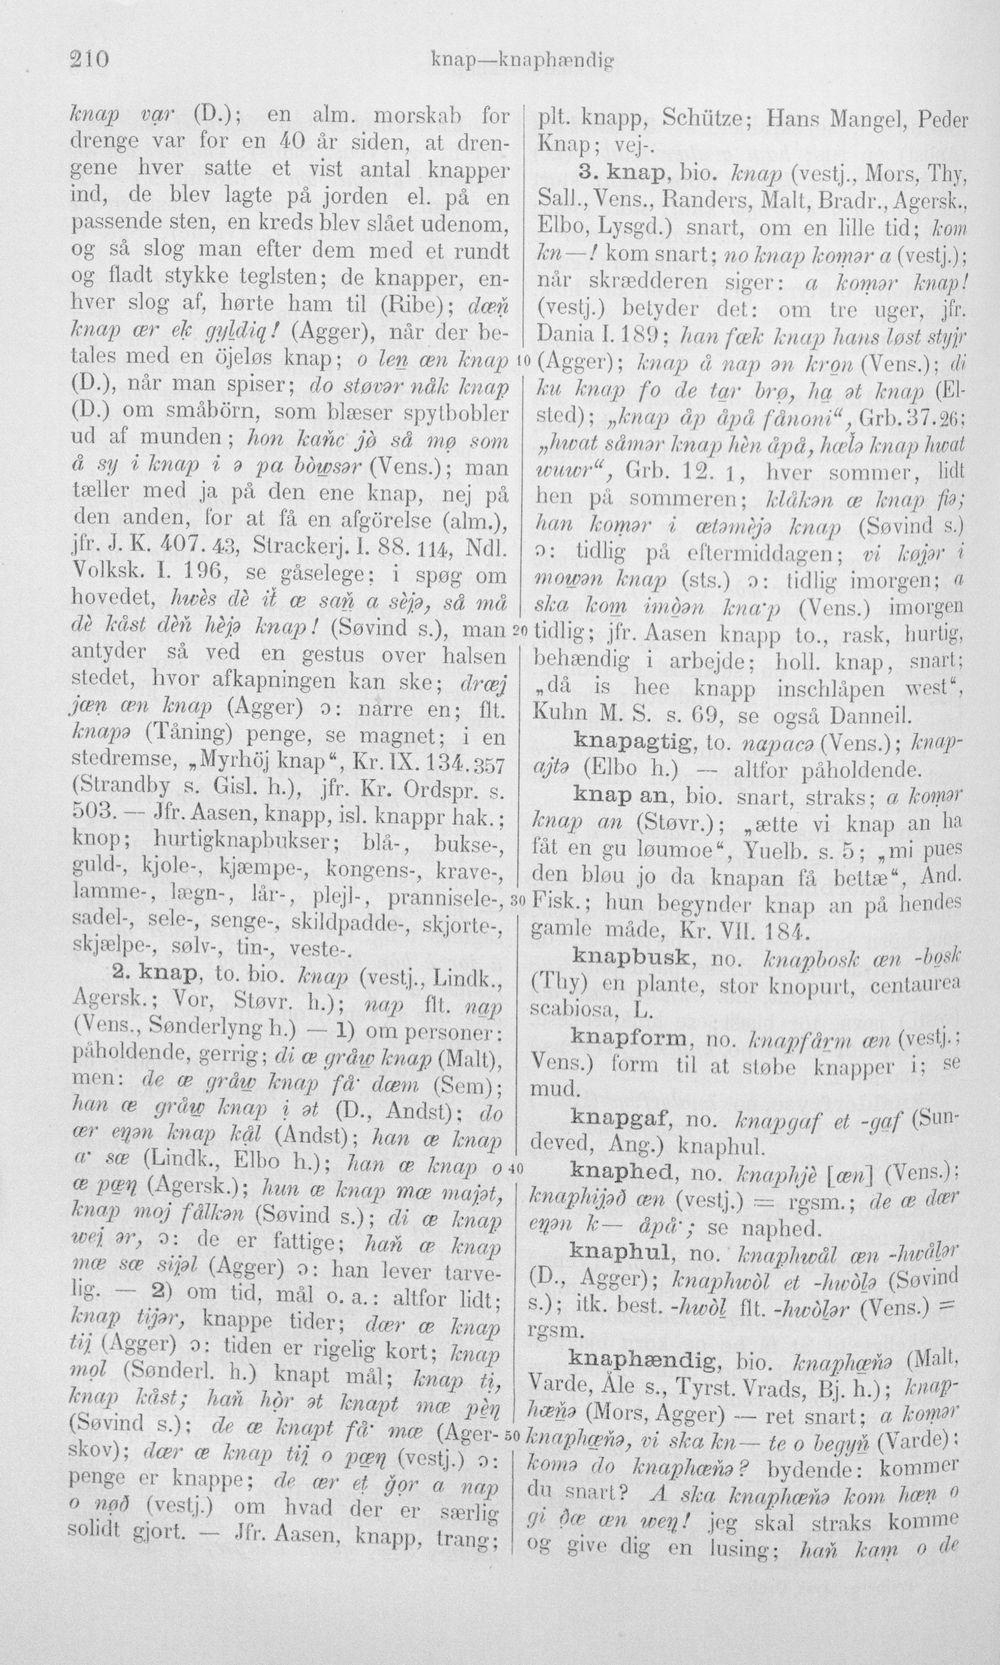 210
knap—knaphændig
knap vąr (D.); en alm. morskab for
drenge var for en 40 år siden, at dren-
gene hver satte et vist antal knapper
ind, de blev lagte på jorden el. på en
passende sten, en kreds blev slået udenom,
og så slog man efter dem med et rundt
og fladt stykke teglsten; de knapper, en-
hver slog af, hørte ham til (Ribe); dœn̆
knap œr ek̨ gyldiq! (Agger), når der be-
tales med en öjeløs knap; o len̨ œn knap
(D.), når man spiser; do støvər nåk knap
(D.) om småbörn, som blæser spytbobler
ud af munden; hon kan̆c jø̀ så mø som
å sy i knap i ə pa bòwsər (Vens.); man
tæller med ja på den ene knap, nej på
den anden, for at få en afgörelse (alm.),
jfr. J. K. 407. 43, Strackerj. I. 88. 114, Ndl.
Volksk. I. 196, se gåselege; i spøg om
hovedet, hwès dè it œ san̆ a sèjə, så må
dè kåst dèn̆ hèjə knap! (Søvind s.), man
antyder så ved en gestus over halsen
stedet, hvor afkapningen kan ske; dræj
jœn œn knap (Agger) ɔ: narre en; flt.
knapə (Tåning) penge, se magnet; i en
stedremse, „Myrhöj knap“, Kr. IX. 134. 357
(Strandby s. Gisl. h.), jfr. Kr. Ordspr. s.
503. — Jfr. Aasen, knapp, isl. knappr hak.;
knop; hurtigknapbukser; blå-, bukse-,
guld-, kjole-, kjæmpe-, kongens-, krave-,
lamme-, lægn-, lår-, plejl-, prannisele-,
sadel-, sele-, senge-, skildpadde-, skjorte-,
skjælpe-, sølv-, tin-, veste-.
2. knap, to. bio. knap (vestj., Lindk.,
Agersk.; Vor, Støvr. h.); nap flt. nąp
(Vens., Sønderlyng h.) — 1) om personer:
påholdende, gerrig; di œ gråw knap (Malt),
men: de œ gråw knap få· dœm (Sem);
han œ gråw knap i ət (D., Andst); do
œr eŋən knap kål (Andst); han œ knap
a· sœ (Lindk., Elbo h.); han œ knap o
œ pœŋ (Agersk.); hun œ knap mœ majət,
knap moj fålkən (Søvind s.); di œ knap
wej ər, ɔ: de er fattige; han̆ œ knap
mœ sœ sijəl (Agger) ɔ: han lever tarve-
lig. — 2) om tid, mål o. a.: altfor lidt;
knap tijər, knappe tider; dœr œ knap
tij (Agger) ɔ: tiden er rigelig kort; knap
mǫl (Sønderl. h.) knapt mål; knap ti,
knap kåst; han̆ hòr ət knapt mœ pèŋ
(Søvind s.); de œ knapt få· mœ (Ager-
skov); dœr œ knap tij o pœŋ (vestj.) ɔ:
penge er knappe; de œr et gǫr a nap
o nøð (vestj.) om hvad der er særlig
solidt gjort. — Jfr. Aasen, knapp, trang;
plt. knapp, Schütze; Hans Mangel, Peder
Knap; vej-.
3. knap, bio. knap (vestj., Mors, Thy,
Sall., Vens., Randers, Malt, Bradr., Agersk.,
Elbo, Lysgd.) snart, om en lille tid; kom
kn—! kom snart; no knap komər a (vestj.);
når skrædderen siger: a komər knap!
(vestj.) betyder det: om tre uger, jfr.
Dania I. 189; han fœk knap hans løst styjr
10 (Agger); knap å nap ən krǫn (Vens.); di
ku knap fo de tąr brø, hą ət knap (El-
sted); „knap åp åpå fånoni“, Grb. 37. 26;
„hwat såmər knap hèn åpå, hœlə knap hwat
wuwr“, Grb. 12. 1, hver sommer, lidt
hen på sommeren; klåkən œ knap fiə;
han komər i œtəmèjə knap (Søvind s.)
ɔ: tidlig på eftermiddagen; vi køjər i
mowən knap (sts.) ɔ: tidlig imorgen; a
ska kom imòən kna·p (Vens.) imorgen
20 tidlig; jfr. Aasen knapp to., rask, hurtig,
behændig i arbejde; holl. knap, snart;
„då is hee knapp inschlåpen west“,
Kuhn M. S. s. 69, se også Danneil.
knapagtig, to. napacə (Vens.); knap-
ajtə (Elbo h.) — altfor påholdende.
knap an, bio. snart, straks; a komər
knap an (Støvr.); „ætte vi knap an ha
fåt en gu løumoe“, Yuelb. s. 5; „mi pues
den bløu jo da knapan få bettæ“, And.
30 Fisk.; hun begynder knap an på hendes
gamle måde, Kr. VII. 184.
knapbusk, no. knapbosk œn -bǫsk
(Thy) en plante, stor knopurt, centaurea
scabiosa, L.
knapform, no. knapfårm œn (vestj.;
Vens.) form til at støbe knapper i; se
mud.
knapgaf, no. knapgaf et -gąf (Sun-
deved, Ang.) knaphul.
40 knaphed, no. knaphjè [œn] (Vens.);
knaphijəð œn (vestj.) = rgsm.; de œ dœr
eŋən k— åpå·; se naphed.
knaphul, no. knaphwål œn -hwålər
(D., Agger); knaphwòl et -hwòlə (Søvind
s.); itk. best. -hwòl flt. -hwòlər (Vens.) =
rgsm.
knaphændig, bio. knaphœn̆ə (Malt,
Varde, Åle s., Tyrst. Vrads, Bj. h.); knap-
hœn̆ə (Mors, Agger) — ret snart; a komər
50 knaphœn̆ə, vi ska kn— te o begyn̆ (Varde);
komə do knaphœn̆ə? bydende: kommer
du snart? A ska knaphœn̆ə kom hœn o
gi ðœ œn weŋ! jeg skal straks komme
og give dig en lusing; han̆ kam o de